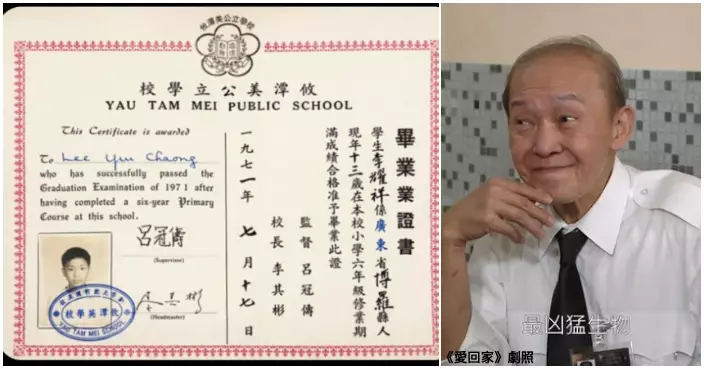 攸潭美公立學校
攸潭美公立學校
YAU TAM MEI PUBLIC SCHOOL
This Certificate is awarded
To Lee Yiu Cheong
who has successfully passed the
Graduation Examination of 1971 after
having completed a six-year Primary
Course at this school.
(Supervisor)
(Headmaster)
YAU TAM MEI SCHOOL
畢業證書
學生李耀祥係廣東省博羅縣人
現年十三歲在本校小學六年級修業期
滿成績合格准予畢業此證
監督 呂冠儔
校長 李其彬
一九七一年七月十七日
最凶猛生物
《愛回家》劇照